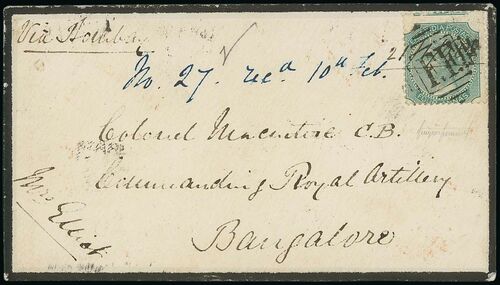 Via Bombay
No. 27. recd 10th Feb.
Colonel Macintire C.B.
Commanding Royal Artillery
Bangalore
Mrs Elliot